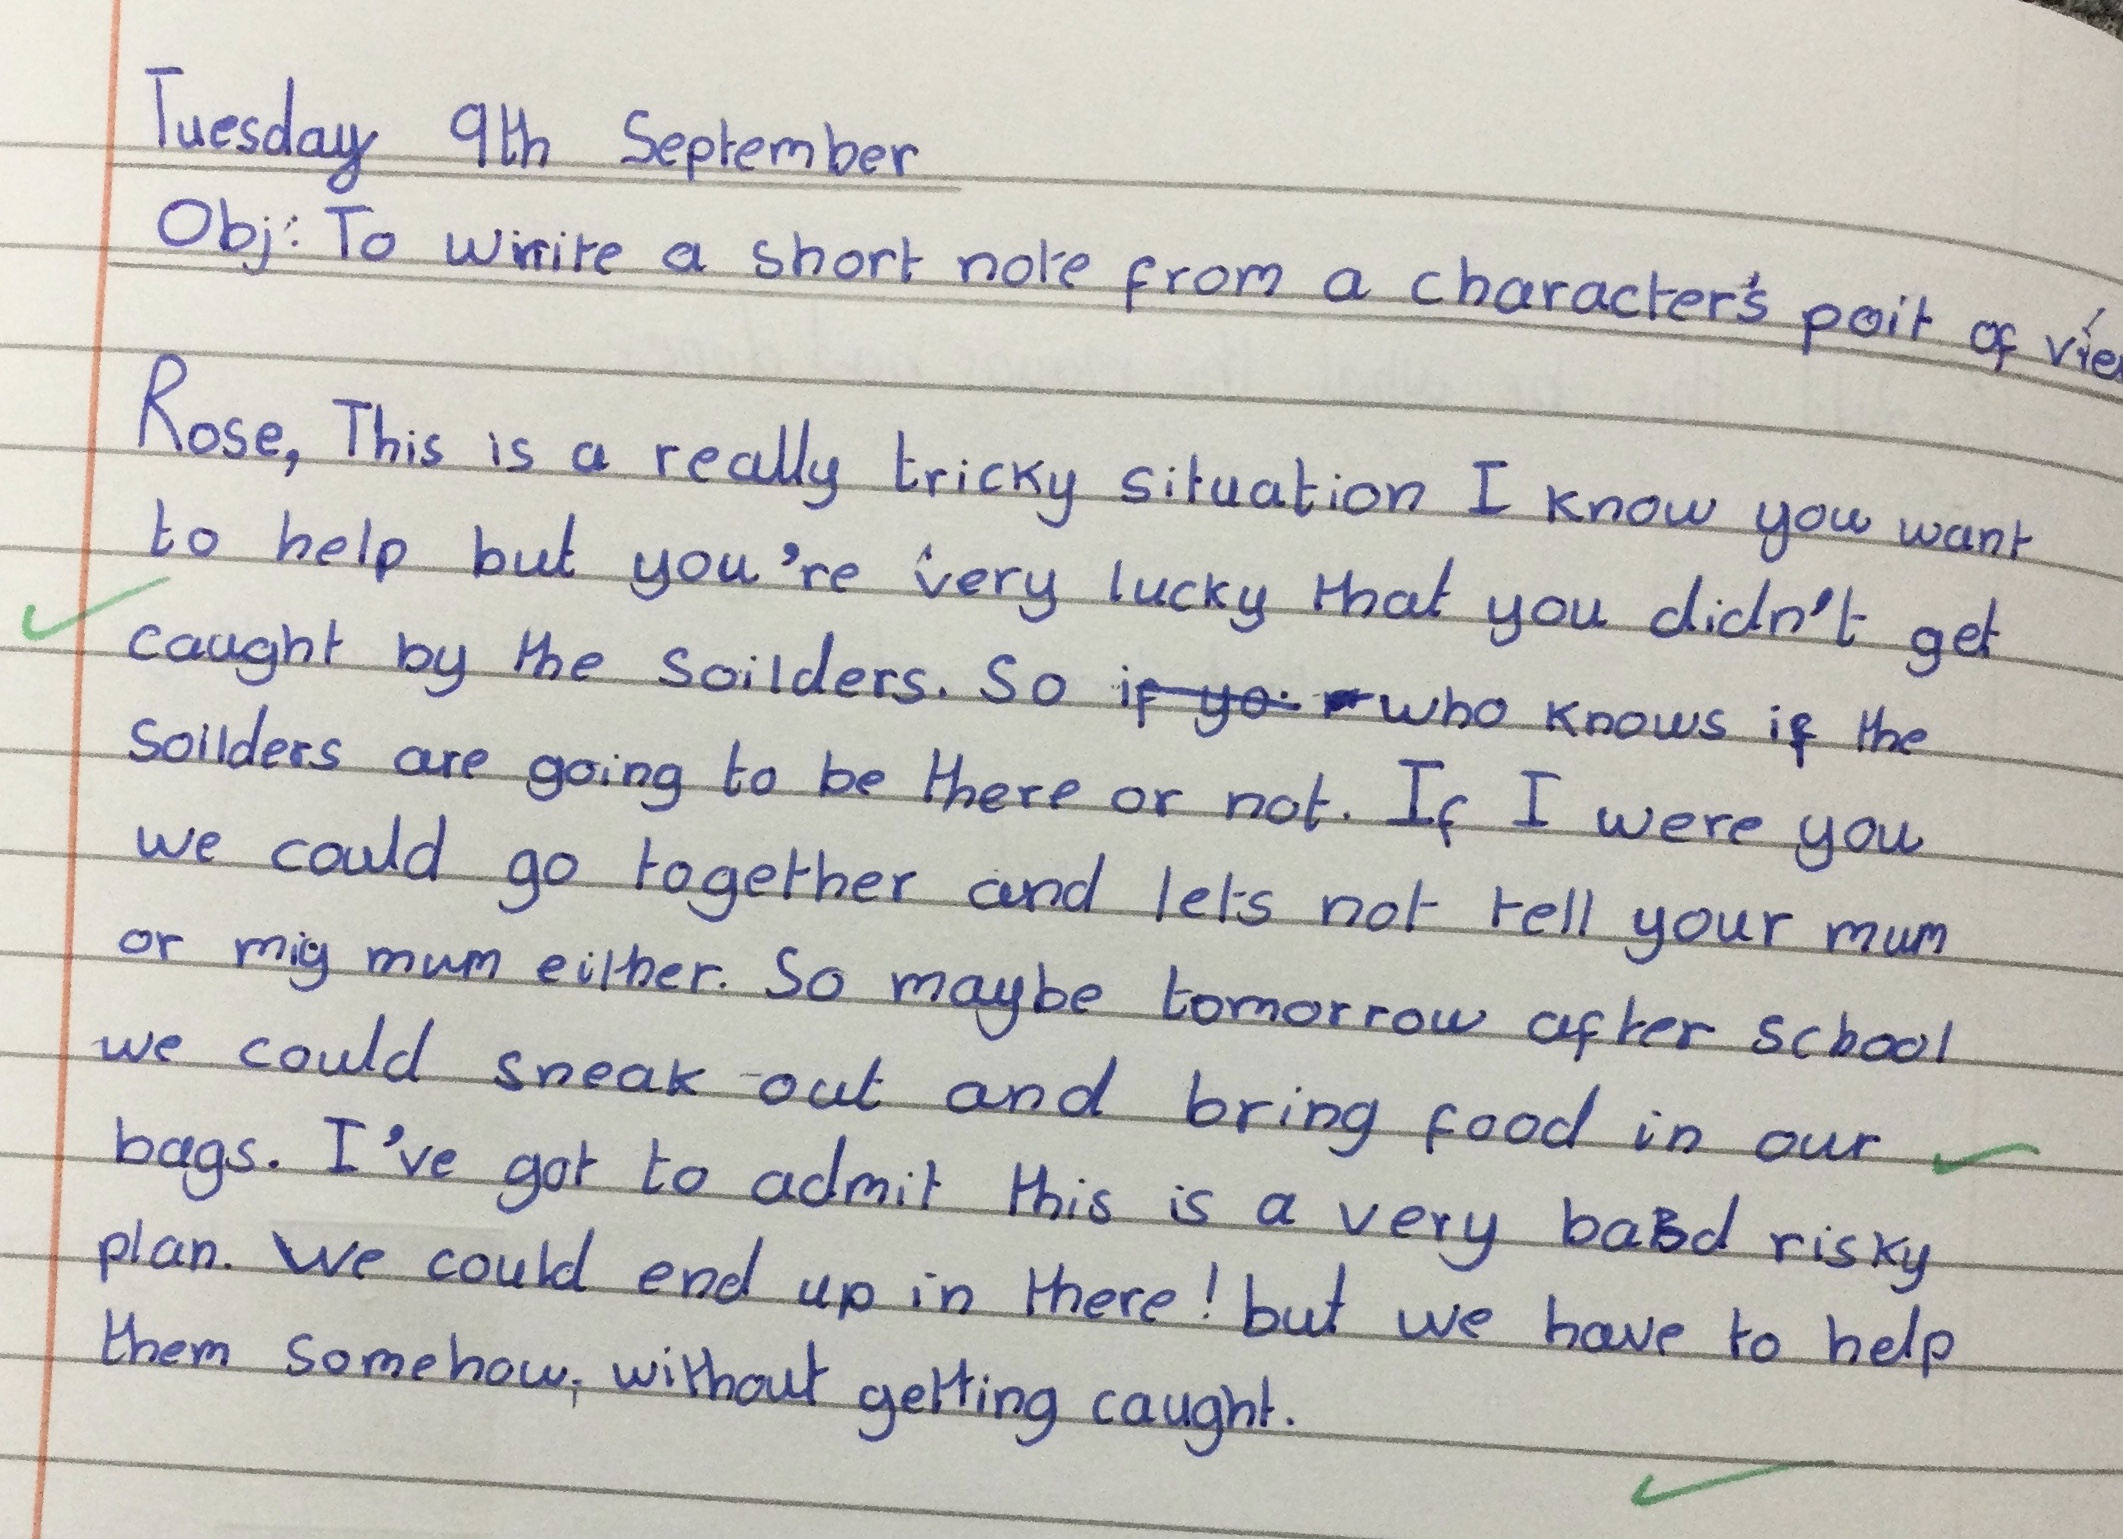 Tuesday 9th September
Obj: To write a short note from a character's poit of vie
Rose, This is a really tricky situation I know you want
to help but you're very lucky that you didn't get
caught by the soilders. So if yo who knows if the
soilders are going to be there or not. If I were you
we could go together and lets not tell your mum
or my mum either. So maybe tomorrow after school
we could sneak out and bring food in our
bags. I've got to admit this is a very bad risky
plan. We could end up in there! but we have to help
them somehow, without getting caught.